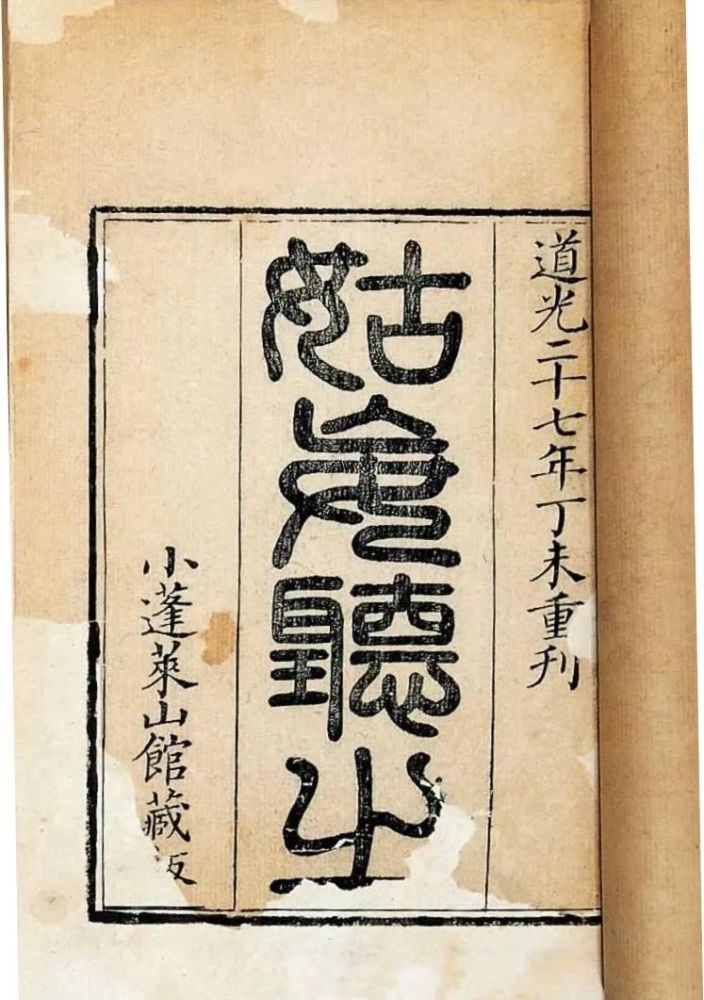 道光二十七年丁未重刊
姑妄聽之
小蓬萊山館藏